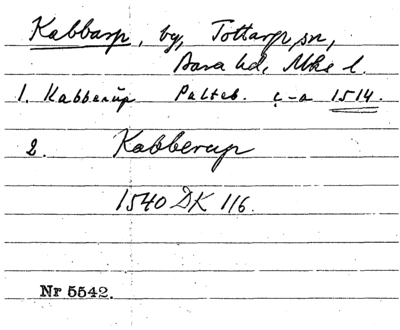 Kabbarp, by, Tottarp sn,
Bara hd, Mhs l.
1. Kabberup Palteb. c-a 1514.
2. Kabberup
1540 DK 116.
Nr 5542.